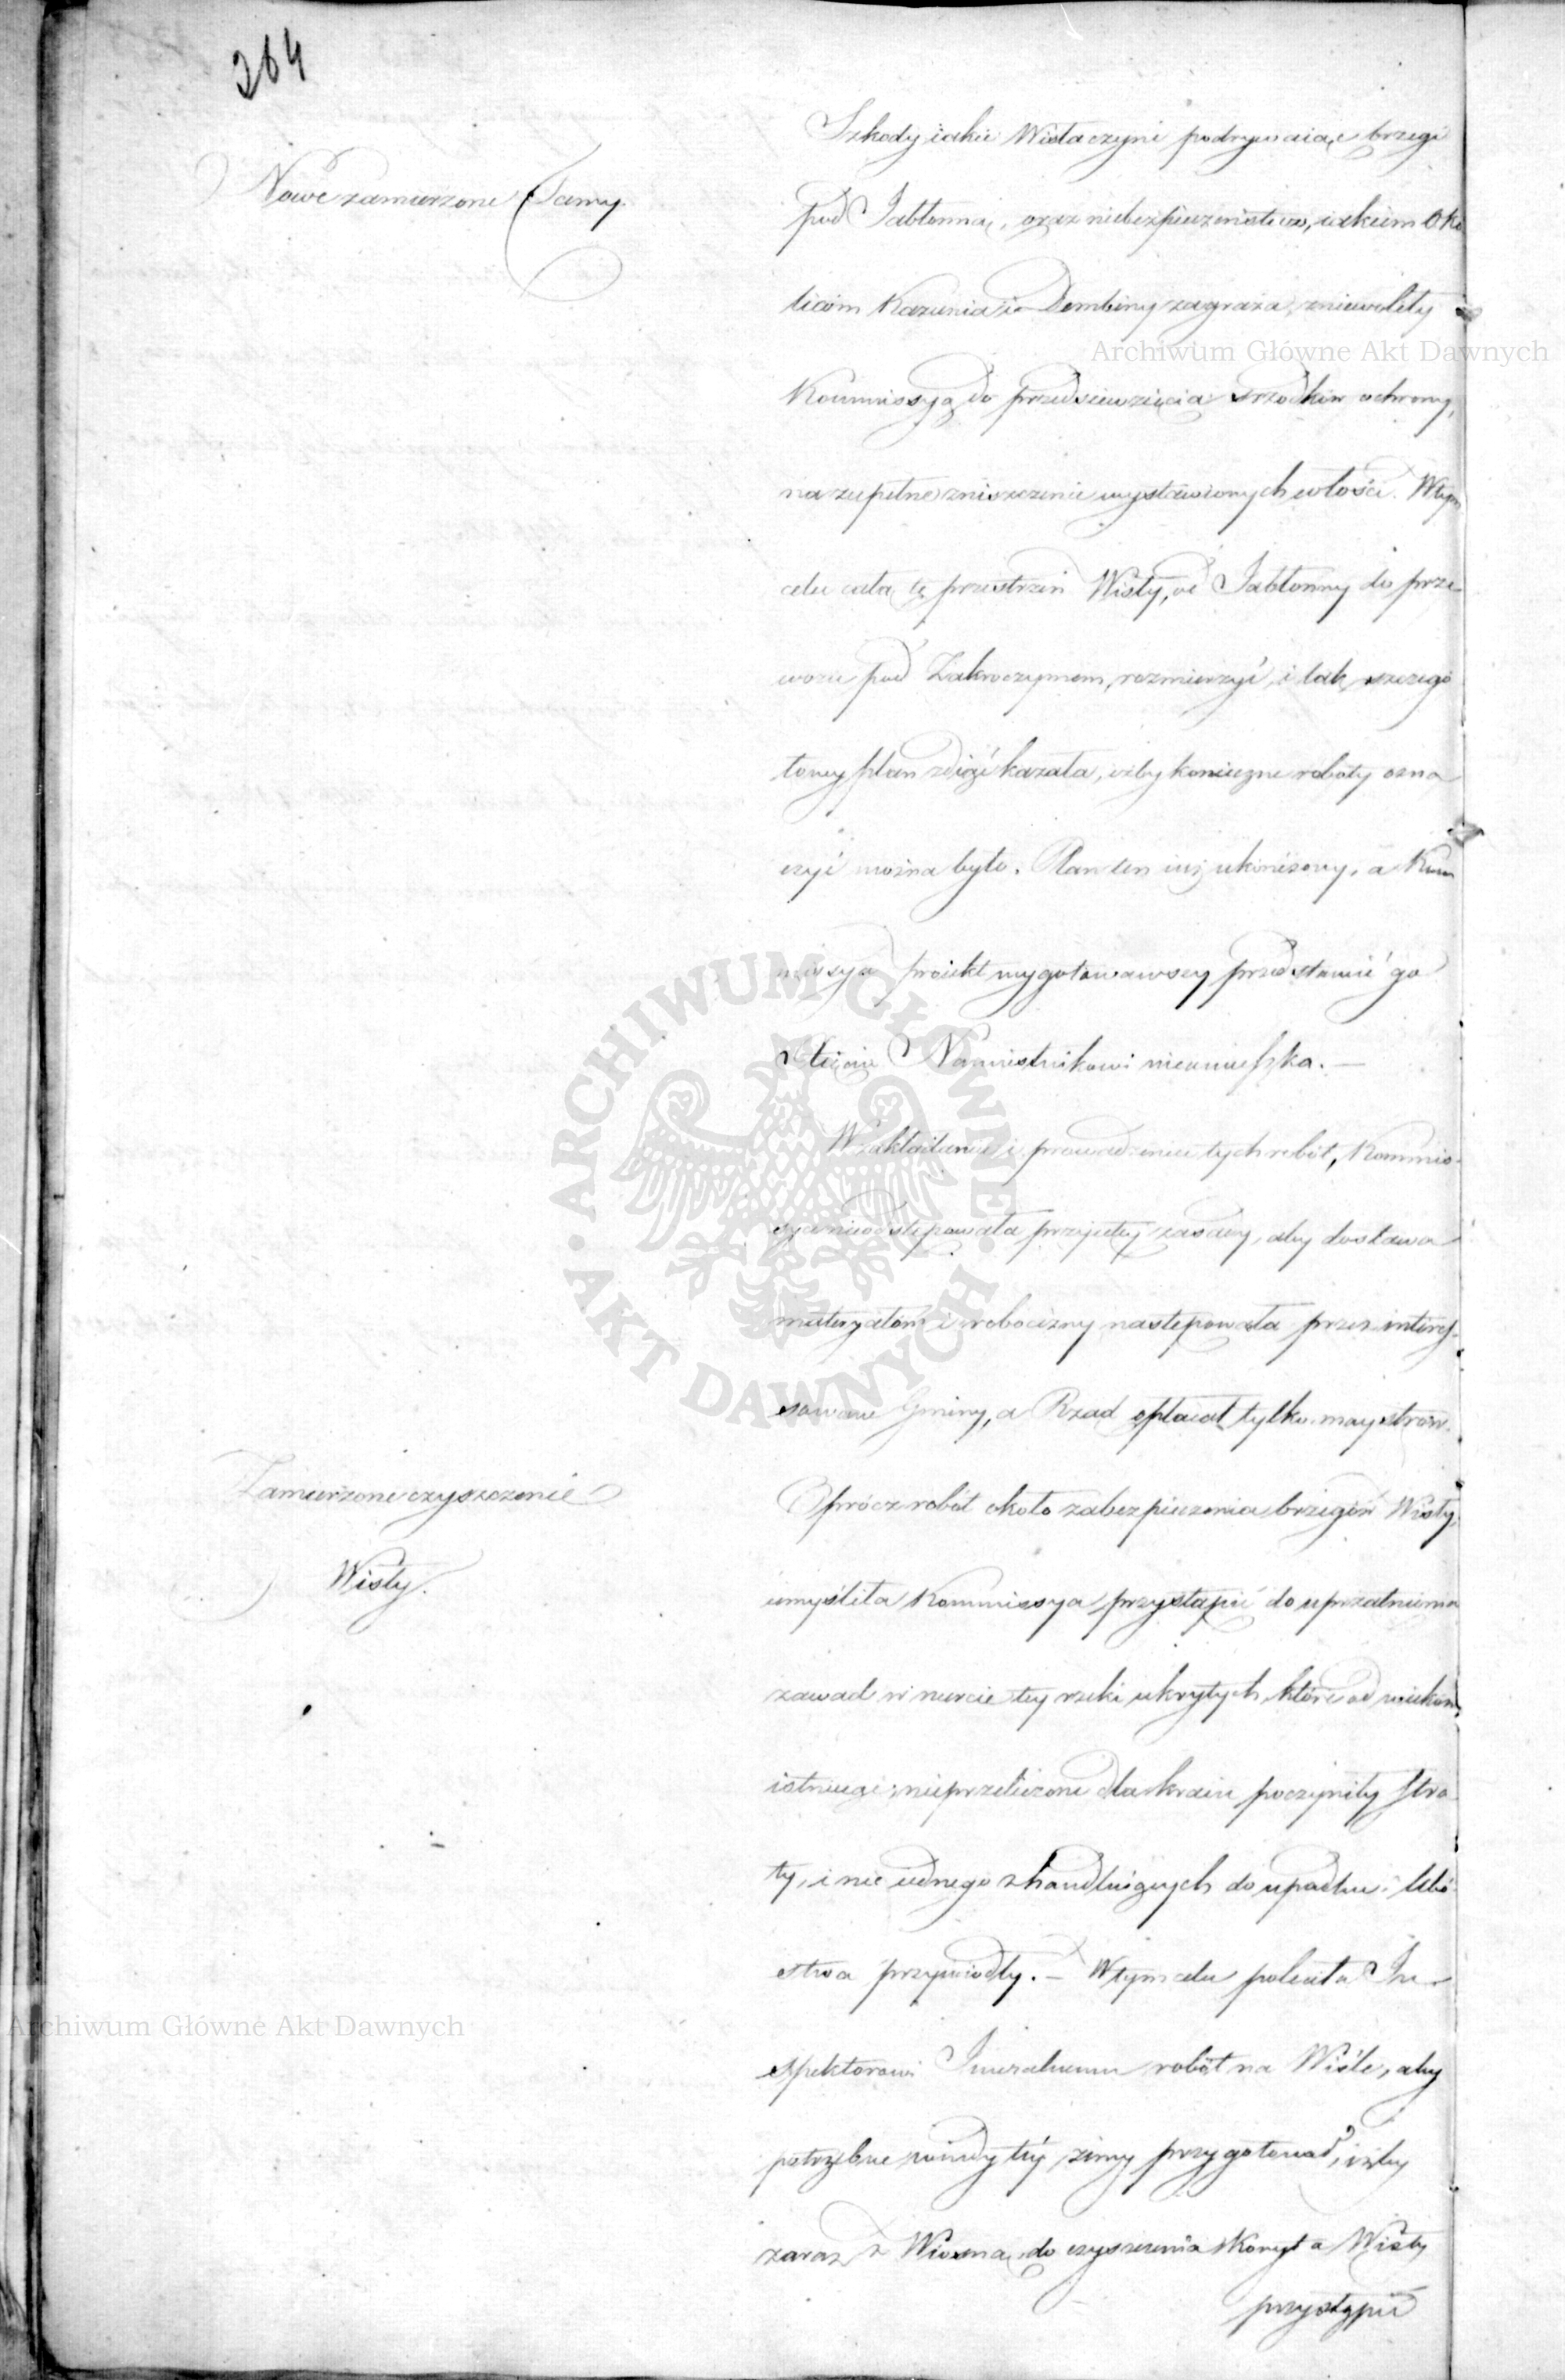 264
Nowe zamierzone Tamy.
Szkody iakie Wisła czyni podrywaiąc brzegi
pod Jabłonną, oraz niebezpieczeństwo, iakiem Oko
licom Kazunia i Dembiny zagraża, zniewoliły
Kommissyą do przedsięwzięcia srzodków ochrony,
na zupełne zniszczenie wystawionych włości. W tym
celu całą tę przestrzeń Wisły, od Jabłonny do prze-
wozu pod Zakroczymem, rozmierzyć, i tak szczegó
łowy plan zdiąć kazała, iżby konieczne roboty ozna
czyć można było. Plan ten iuż ukończony, a Kom
missya proiekt wygotowawszy przedstawić go
Xięciu Namiestnikowi nieomieszka. —
W zakładaniu i prowadzeniu tych robót, Kommis-
sya nieodstępowała przyjętey zasady, aby dostawa
materyałów i robocizny następowała przez interes-
sowane Gminy, a Rząd opłacał tylko maystrów.
Zamierzone czyszczenie
Wisły.
Oprócz robót około zabezpieczenia brzegów Wisły,
umyśliła Kommissya przystąpić do uprzątnienia
zawad w nurcie tey rzeki ukrytych które od wieków
istnieiąc nieprzeliczone dla kraiu poczyniły stra
ty, i nie iednego z handluiących do upadku i Ubó
stwa przywiodły. — W tym celu poleciła In-
spektorowi Jeneralnemu robót na Wiśle, aby
potrzebne windy téy zimy przygotował, iżby
zaraz z Wiosną do czyszczenia Koryta Wisły
przystąpić
Archiwum Główne Akt Dawnych
ARCHIWUM GŁÓWNE AKT DAWNYCH
Archiwum Główne Akt Dawnych